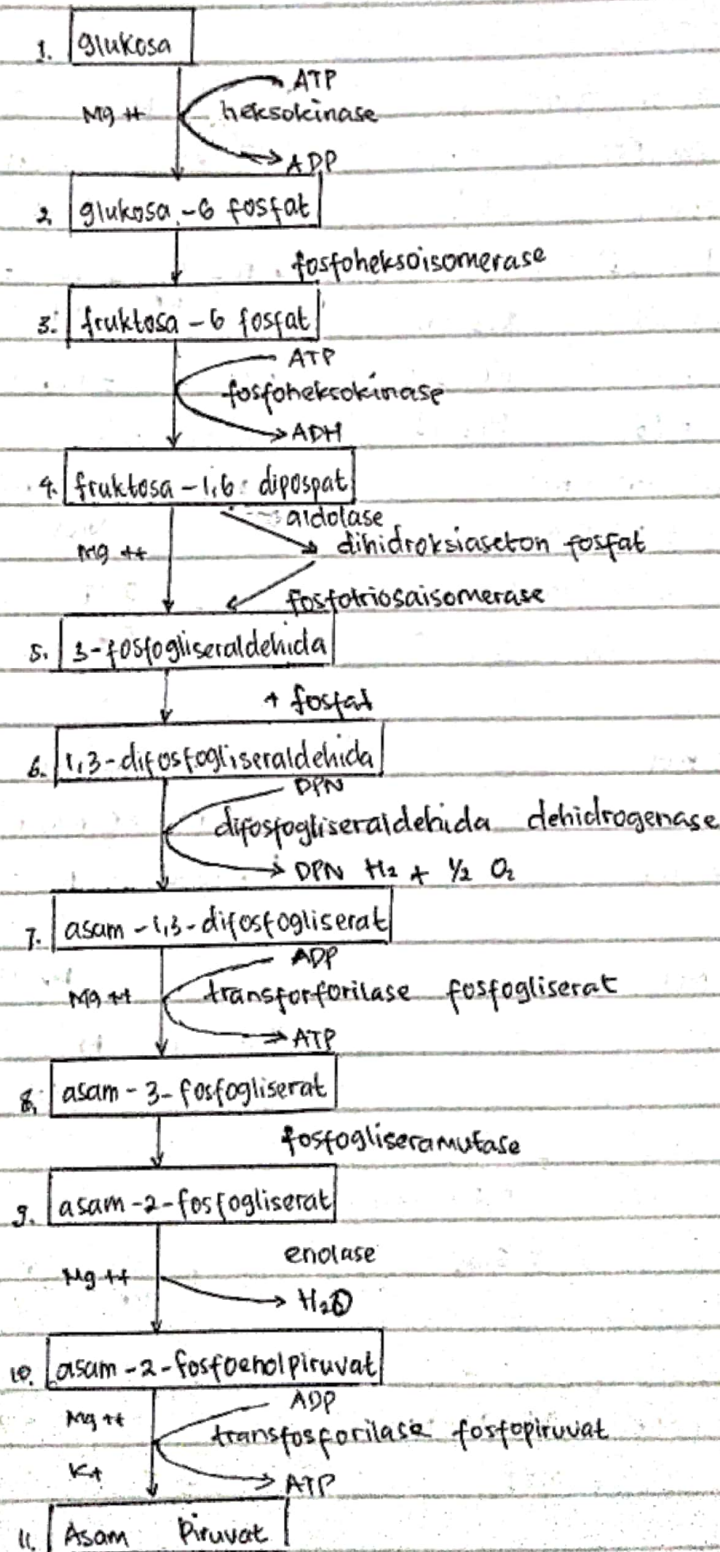 1. glukosa
ATP
Mg ++ heksokinase
ADP
2. glukosa - 6 fosfat
fosfoheksoisomerase
3. fruktosa - 6 fosfat
ATP
fosfoheksokinase
ADH
4. fruktosa - 1,6 dipospat
aldolase
Mg ++ dihidroksiaseton fosfat
fosfotriosaisomerase
5. 3-fosfogliseraldehida
+ fosfat
6. 1,3-difosfogliseraldehida
DPN
difosfogliseraldehida dehidrogenase
DPN H2 + 1/2 O2
7. asam - 1,3 - difosfogliserat
ADP
Mg ++ transforforilase fosfogliserat
ATP
8. asam - 3 - fosfogliserat
fosfogliseramutase
9. asam - 2 - fosfogliserat
enolase
Mg ++
H2O
10. asam - 2 - fosfoenolpiruvat
ADP
Mg ++
transfosforilase fosfopiruvat
K+
ATP
11. Asam Piruvat